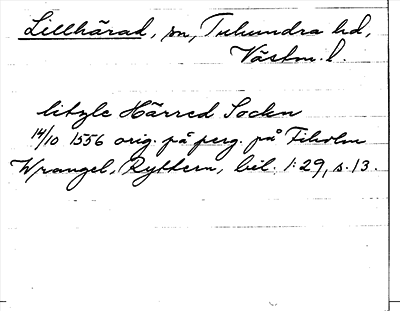 Lillhärad, sn, Tuhundra hd,
Västm. l.
litzle Härred Sockn
14/10 1556 orig. på perg. på Fiholm
Wrangel, Ryttern, bil. 1:29, s. 13.